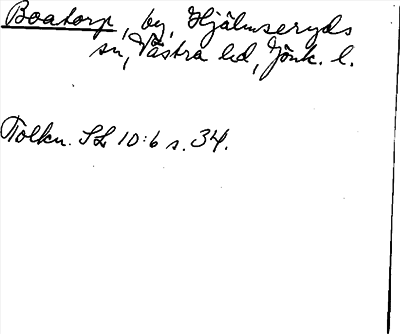 Boatorp, by, Hjälmseryds
sn, Västra hd, Jönk. l.
Tolkn. SL 10:6 s. 34.